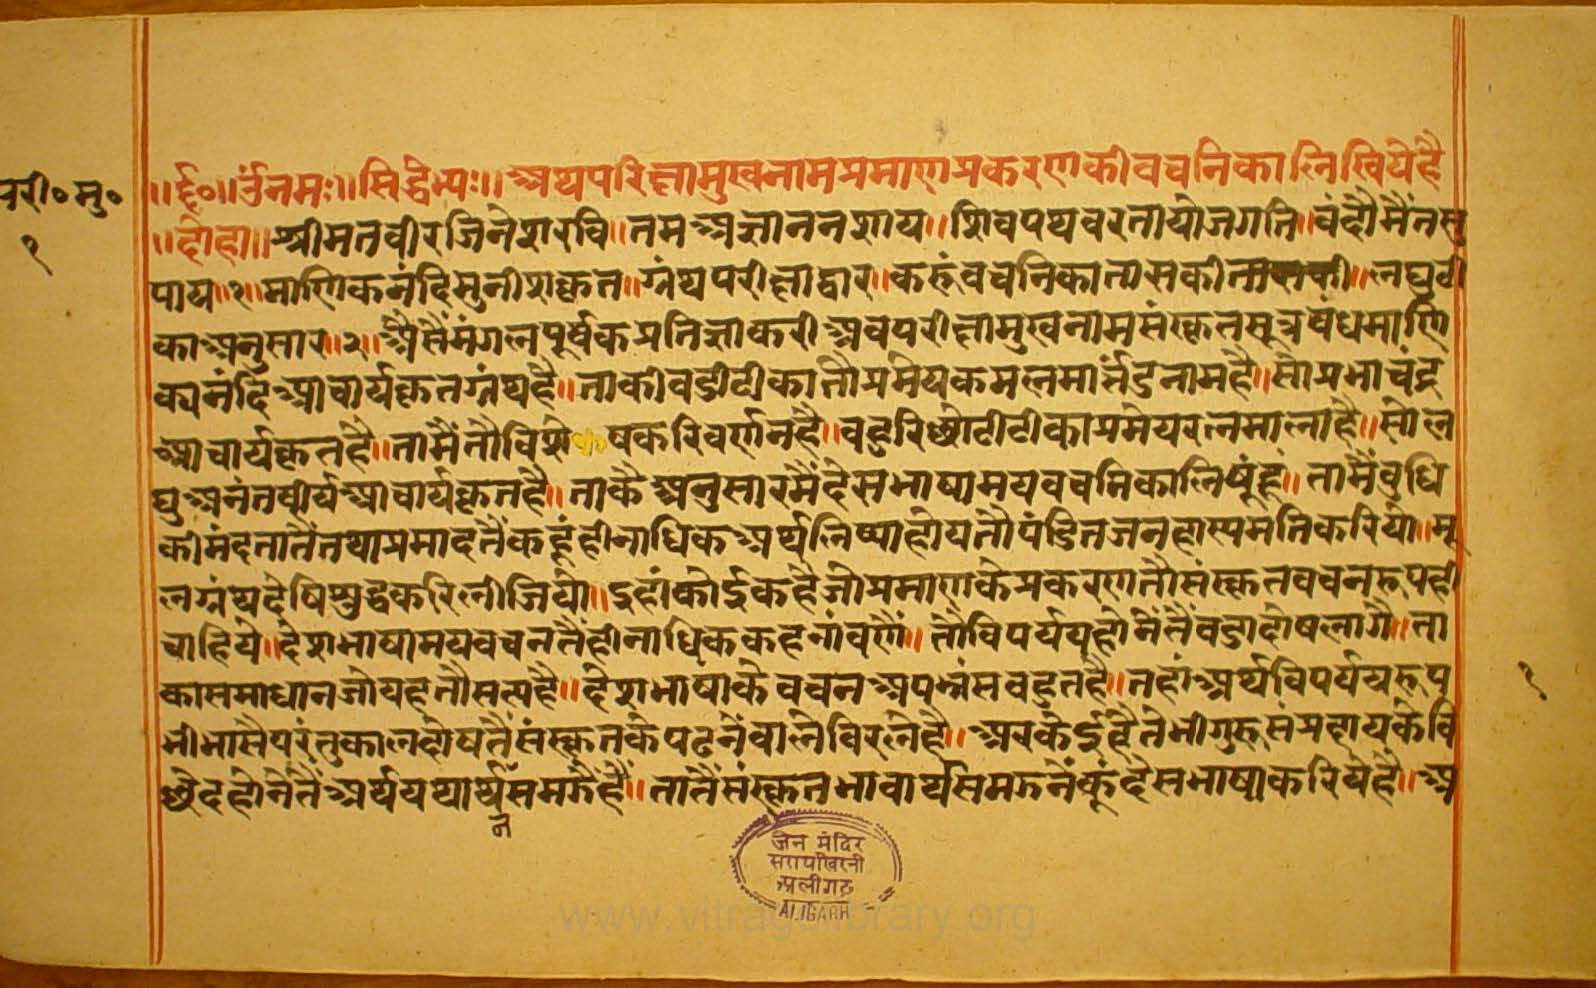 परी॰मु॰
१
॥ र्द्द॰॥ र्उनमः॥ सिद्धेभ्यः॥ अथपरिक्षामुखनामप्रमाणप्रकरणकीवचनिकालिखियेहै
॥दोहा॥ श्रीमतवीरजिनेशरवि॥ तमअज्ञाननशाय॥ शिवपथवरतायोजगति॥ वंदौमैंतसु
पाय॥१॥ माणिकनंदिमुनीशकृत॥ ग्रंथपरीक्षाद्वार॥ करुंवचनिकातासकी॥ लघुटी
काअनुसार॥२॥ अैसैंमंगलपूर्वकप्रतिज्ञाकरीअवपरीक्षामुखनामसंस्कृतसूत्रवंधमाणि
क्यनंदिआचार्यकृतग्रंथहै॥ ताकीवडीटीकातौप्रमेयकमलमार्त्तंडनामहै॥ सोप्रभाचंद्र
आचार्यकृतहै॥ तामैंतौविशेषकरिवर्णनहै॥ वहुरिछोटीटीकाप्रमेयरत्नमालाहै॥ सोल
घुअनंतवीर्यआचार्यकृतहै॥ ताकैअनुसारमैंदेसभाषामयवचनिकालिषूंहूं॥ तामैंवुधि
कीमंदतातैंतथाप्रमादतैंकहूंहीनाधिकअर्थलिष्याहोयतौपंडितजनहास्यमतिकरियो॥ मू
लग्रंथदेषिशुद्धकरिलीजियो॥ इहांकोईकहैजोप्रमाणकेप्रकरणतौसंस्कृतवचनरूपही
चाहिये॥ देशभाषामयवचनतैंहीनाधिककहनांवणैं॥ तौविपर्ययहोनेंतैंवडादोषलागै॥ ता
कासमाधानजोयहतौसत्यहै॥ देशभाषाकेवचनअपभ्रंसवहुतहै॥ तहांअर्थविपर्ययरूप
भीभासैपरंतुकालदोषतैंसंस्कृतकेपढनेंवालेविरलेहै॥ अरकेईहैतेभीगुरुसंप्रदायकेवि
छेदहोनेतैंअर्थयथार्थसमझैंहैं॥ तातैंसंस्कृतभावार्थसमझनेंकूंदेसभाषाकरियेहै॥ अ
न
१
जैन मंदिर
सरायखिरनी
अलीगढ़
ALIGARH
www.vitragalibrary.org